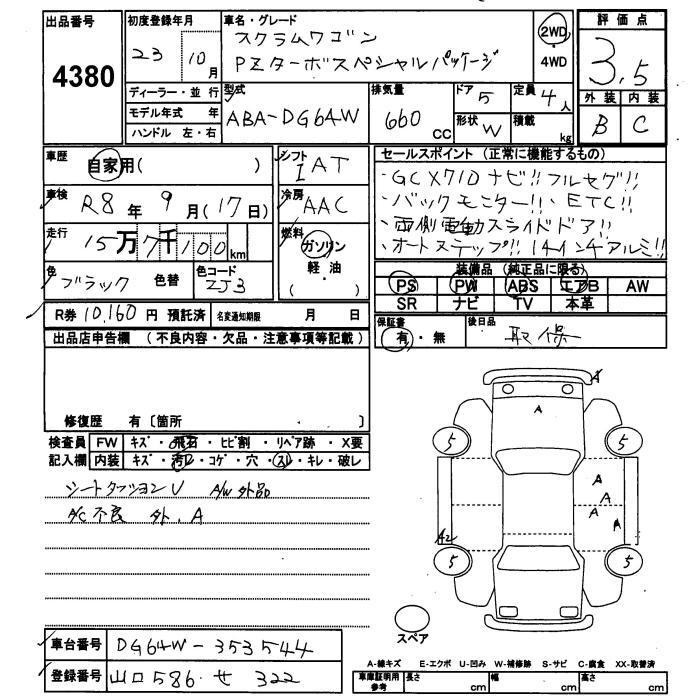 出品番号 初度登録年月 車名・グレード 評価点
4380 23 10月 スクラムワゴン 2WD・4WD 3.5
PZターボスペシャルパッケージ
ディーラー・並行 型式 排気量 ドア 定員 外装 内装
モデル年式 年 ABA-DG64W 660 CC 5 4人 B C
ハンドル 左・右 形状 W 積載 kg
車歴 自家用( ) シフト I AT セールスポイント (正常に機能するもの)
・GCX710ナビ!!フルセグ!!
車検 R8年 9月(17日) 冷房 AAC ・バックモニター!!・ETC!!
・両側電動スライドドア!!
走行 15万7千100km 燃料 ガソリン・軽油・( ) ・オートステップ!! 14インチアルミ!!
色 ブラック 色替 色コード ZJ3 装備品 (純正品に限る)
PS PW ABS エアB AW
SR ナビ TV 本革
R券 10,160円 預託済 名変通知期限 月 日
保証書 有・無 後日品 取保
出品店申告欄 (不良内容・欠品・注意事項等記載)
修復歴 有〔箇所 〕
検査員 FW キズ・飛石・ヒビ割・リペア跡・X要
記入欄 内装 キズ・汚レ・コゲ・穴・スレ・キレ・破レ
シートクッションU A/W外品
A/C不良 外.A
A
A
5 5
A
A
A
A
A2
5 5
スペア
車台番号 DG64W-353544
登録番号 山口586せ322
A-線キズ E-エクボ U-凹み W-補修跡 S-サビ C-腐食 XX-取替済
車庫証明用参考 長さ cm 幅 cm 高さ cm